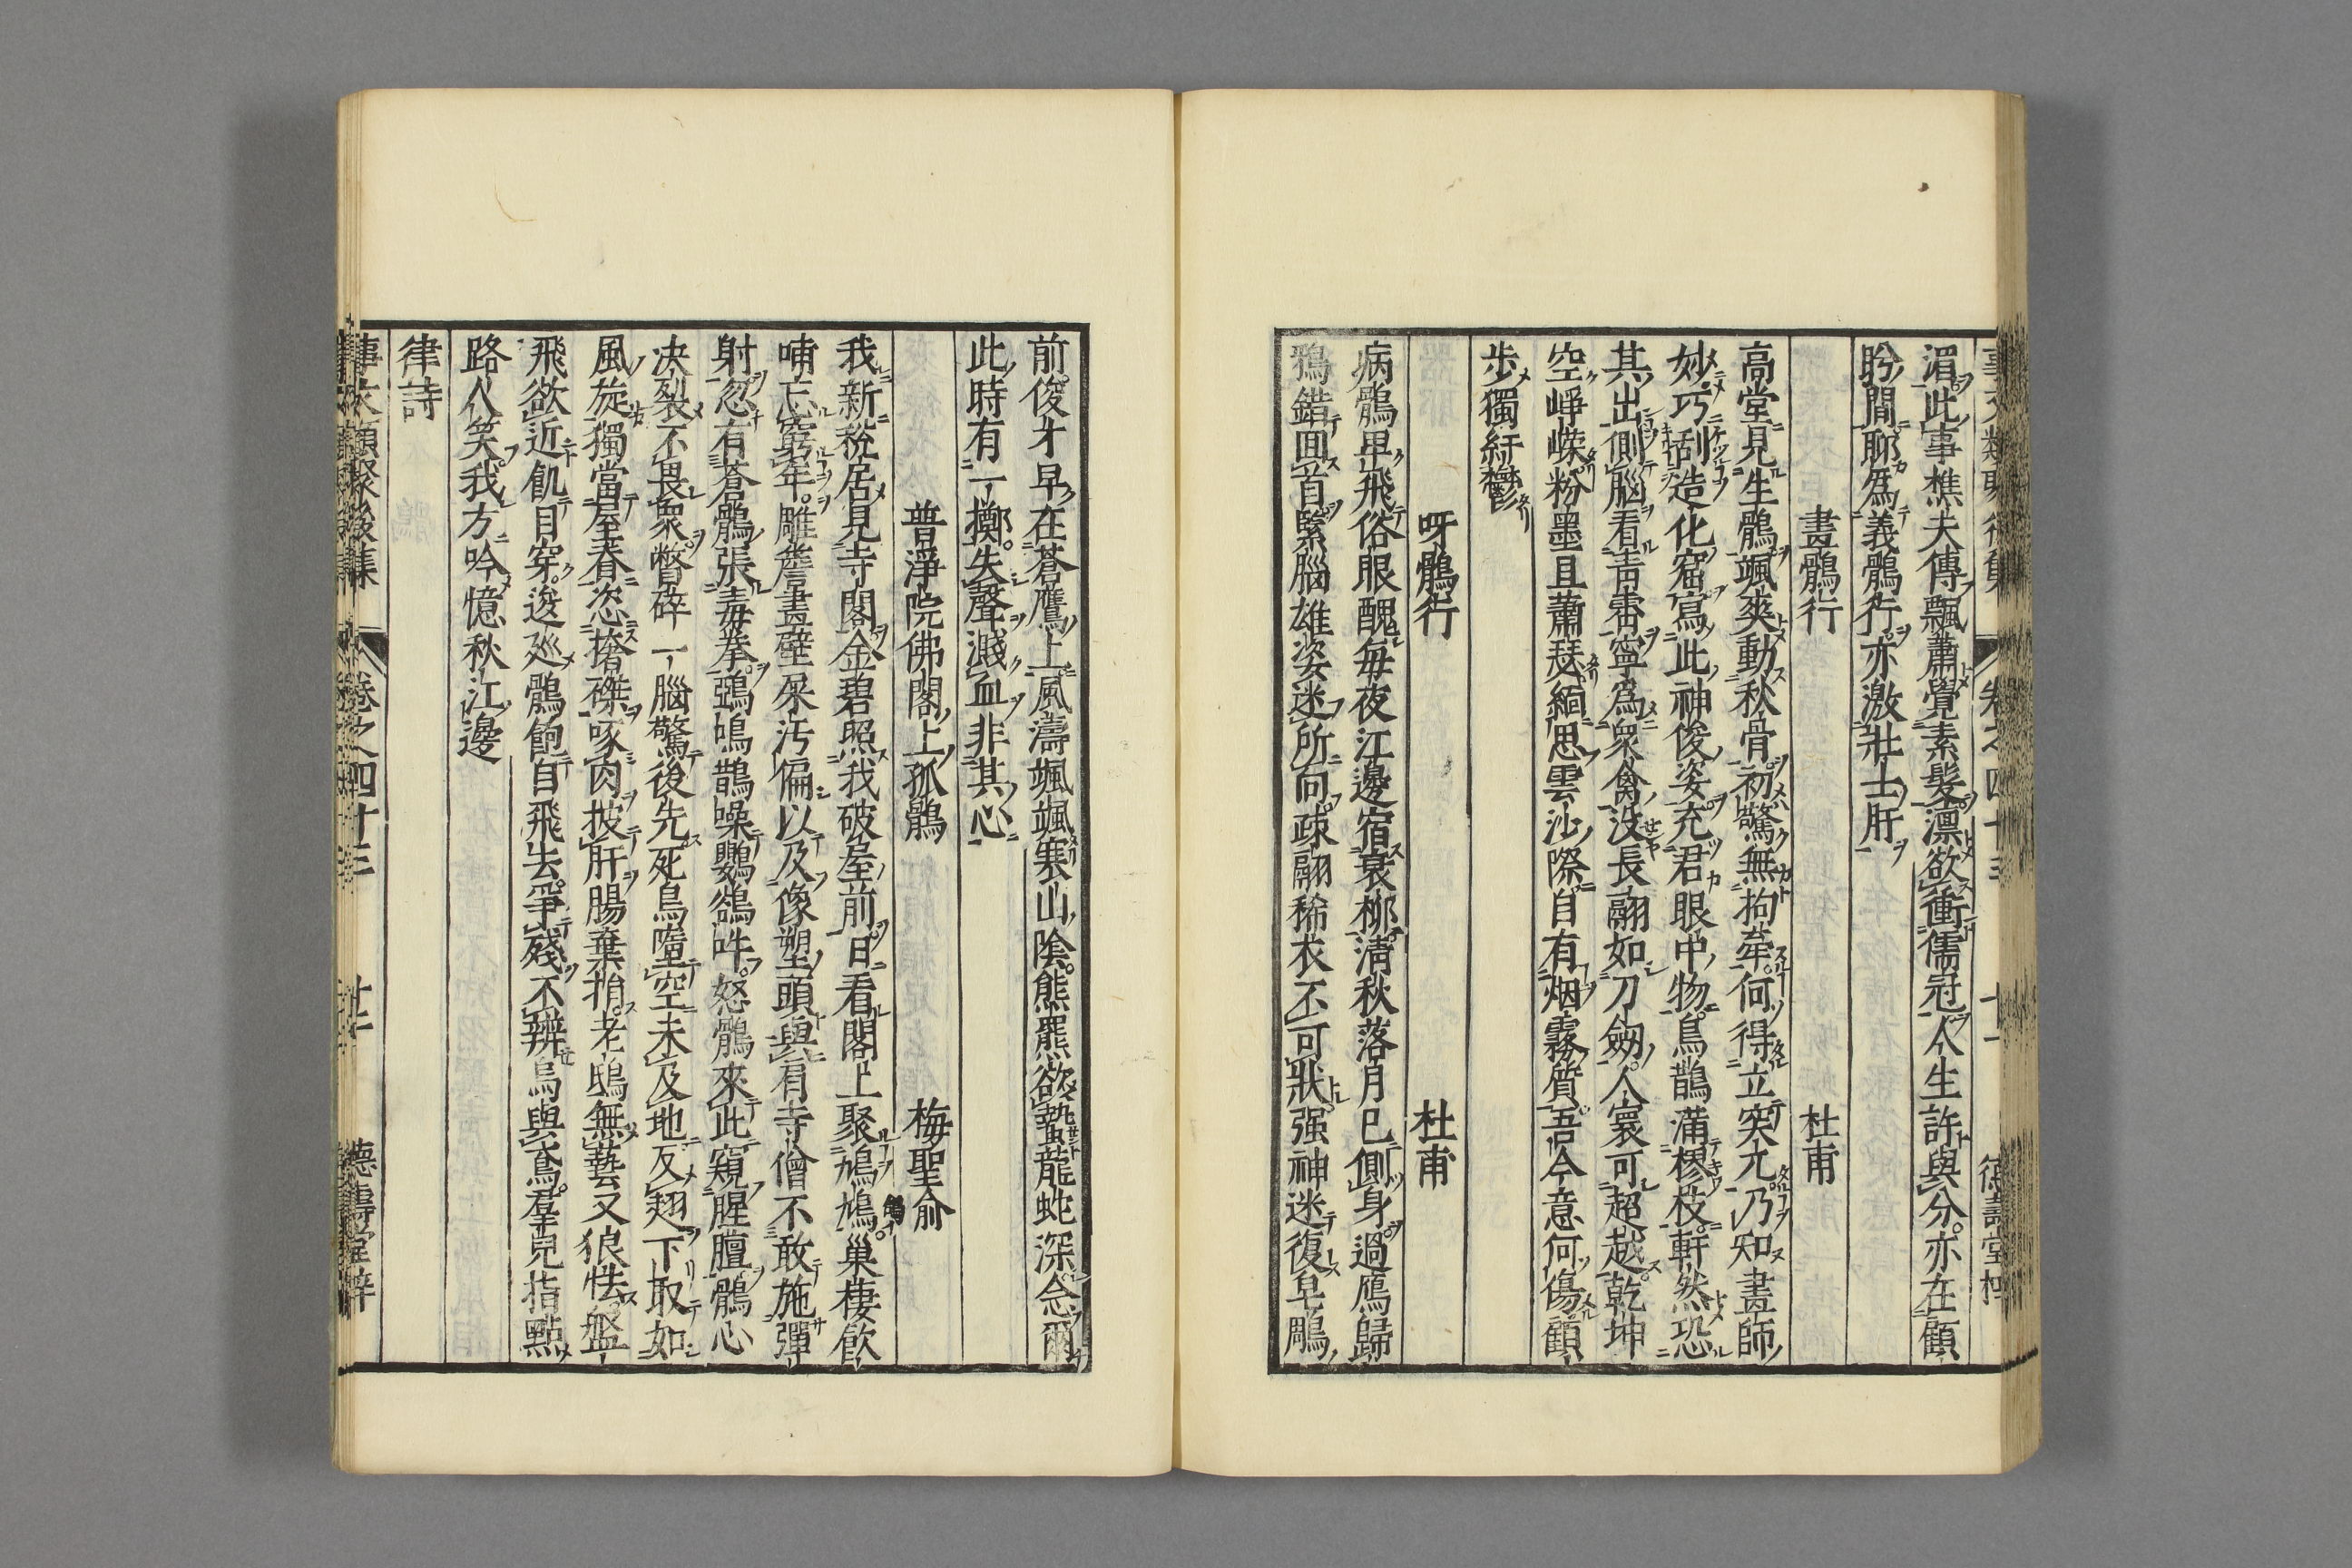 湄此事樵夫傳飄蕭覺素髮凛欲衝儒冠人生許與分亦在顧
盼間聊爲義鶻行亦激壯士肝
畫鶻行 杜甫
高堂見生鶻颯爽動秋骨初驚無拘牽何得立突兀乃知畫師
妙巧刮造化窟寫此神俊姿充君眼中物烏鵲滿樛枝軒然恐
其出側腦看青霄寧爲衆禽没長翮如刀劔人寰可超越乾坤
空崢嶸粉墨且蕭瑟緬思雲沙際自有烟霧質吾今意何傷顧
步獨紆鬱
呀鶻行 杜甫
病鶻卑飛俗眼醜每夜江邊宿衰柳清秋落月已側身過鴈歸
鴉錯回首緊腦雄姿迷所向疎翮稀衣不可狀强神迷復皁鵰
前俊才早在蒼鷹上風濤颯颯寒山陰熊羆欲蟄龍蛇深念爾
此時有一擲失聲濺血非其心
普淨院佛閣上孤鶻 梅聖俞
我新税居見寺閣金碧照我破屋前日看閣上聚鳩鳩巢棲飲
哺忘窮年雕簷畫壁屎汚偏以及像塑頭與肩寺僧不敢施彈
射忽有蒼鶻張毒拳鵶鳴鵲噪鸚鵒吽怒鶻來此窺腥膻鶻心
决裂不畏衆瞥碎一腦驚後先死鳥墮空未及地反翅下取如
風旋獨當屋脊恣搚磔啄肉披肝腸棄捎老鴟無藝又狼怯盤
飛欲近飢目穿逡巡鶻飽自飛去爭殘不辨烏與鳶羣兒指點
路人笑我方吟憶秋江邊
律詩
事文類聚後集 卷之四十三 廿一 德壽堂梓